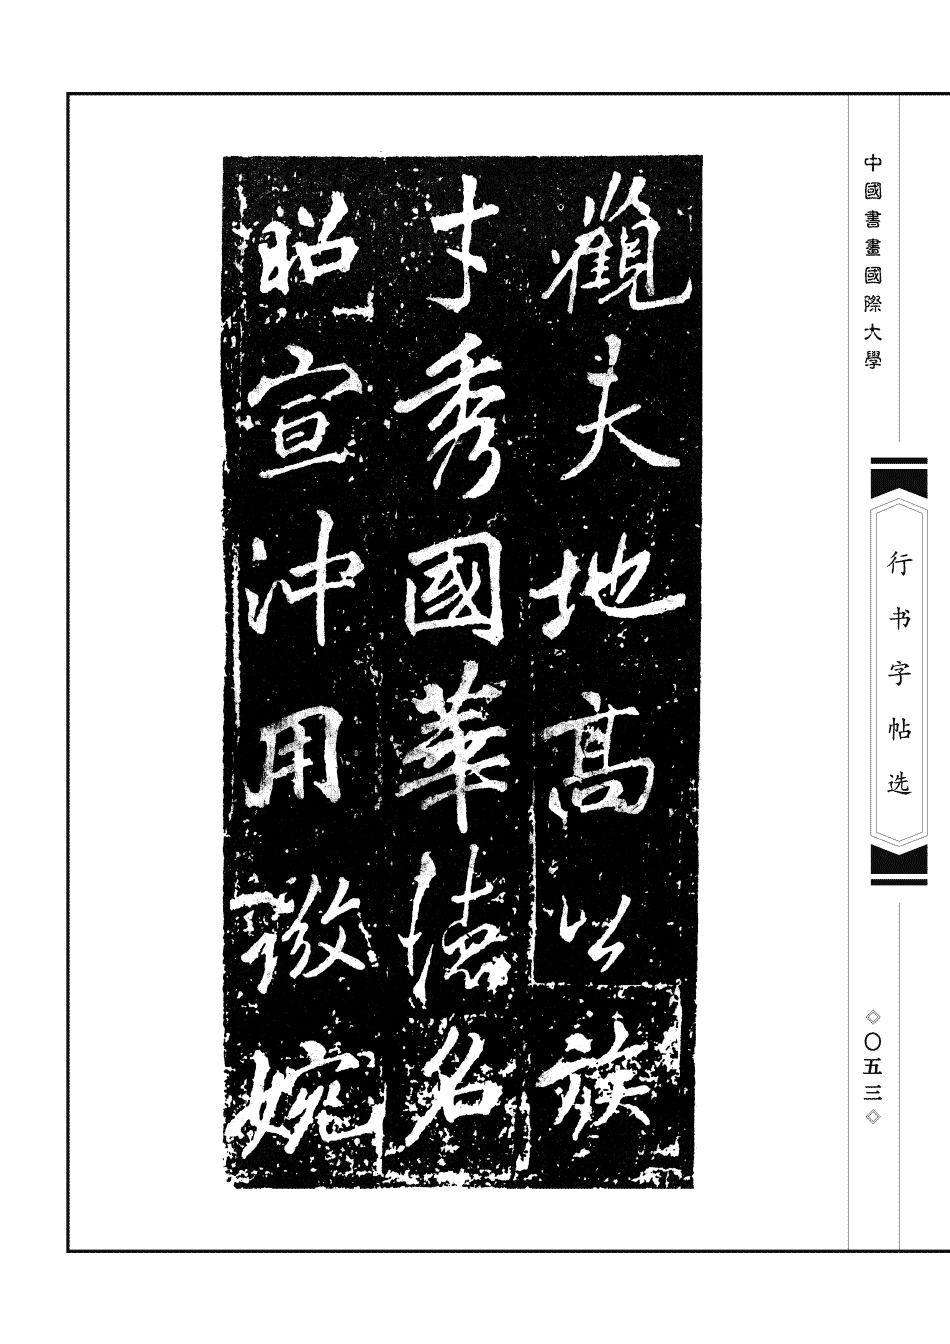 中國書畫國際大學
行书字帖选
〇五三
觀夫地高以族
才秀國華德名
昭宣沖用微婉